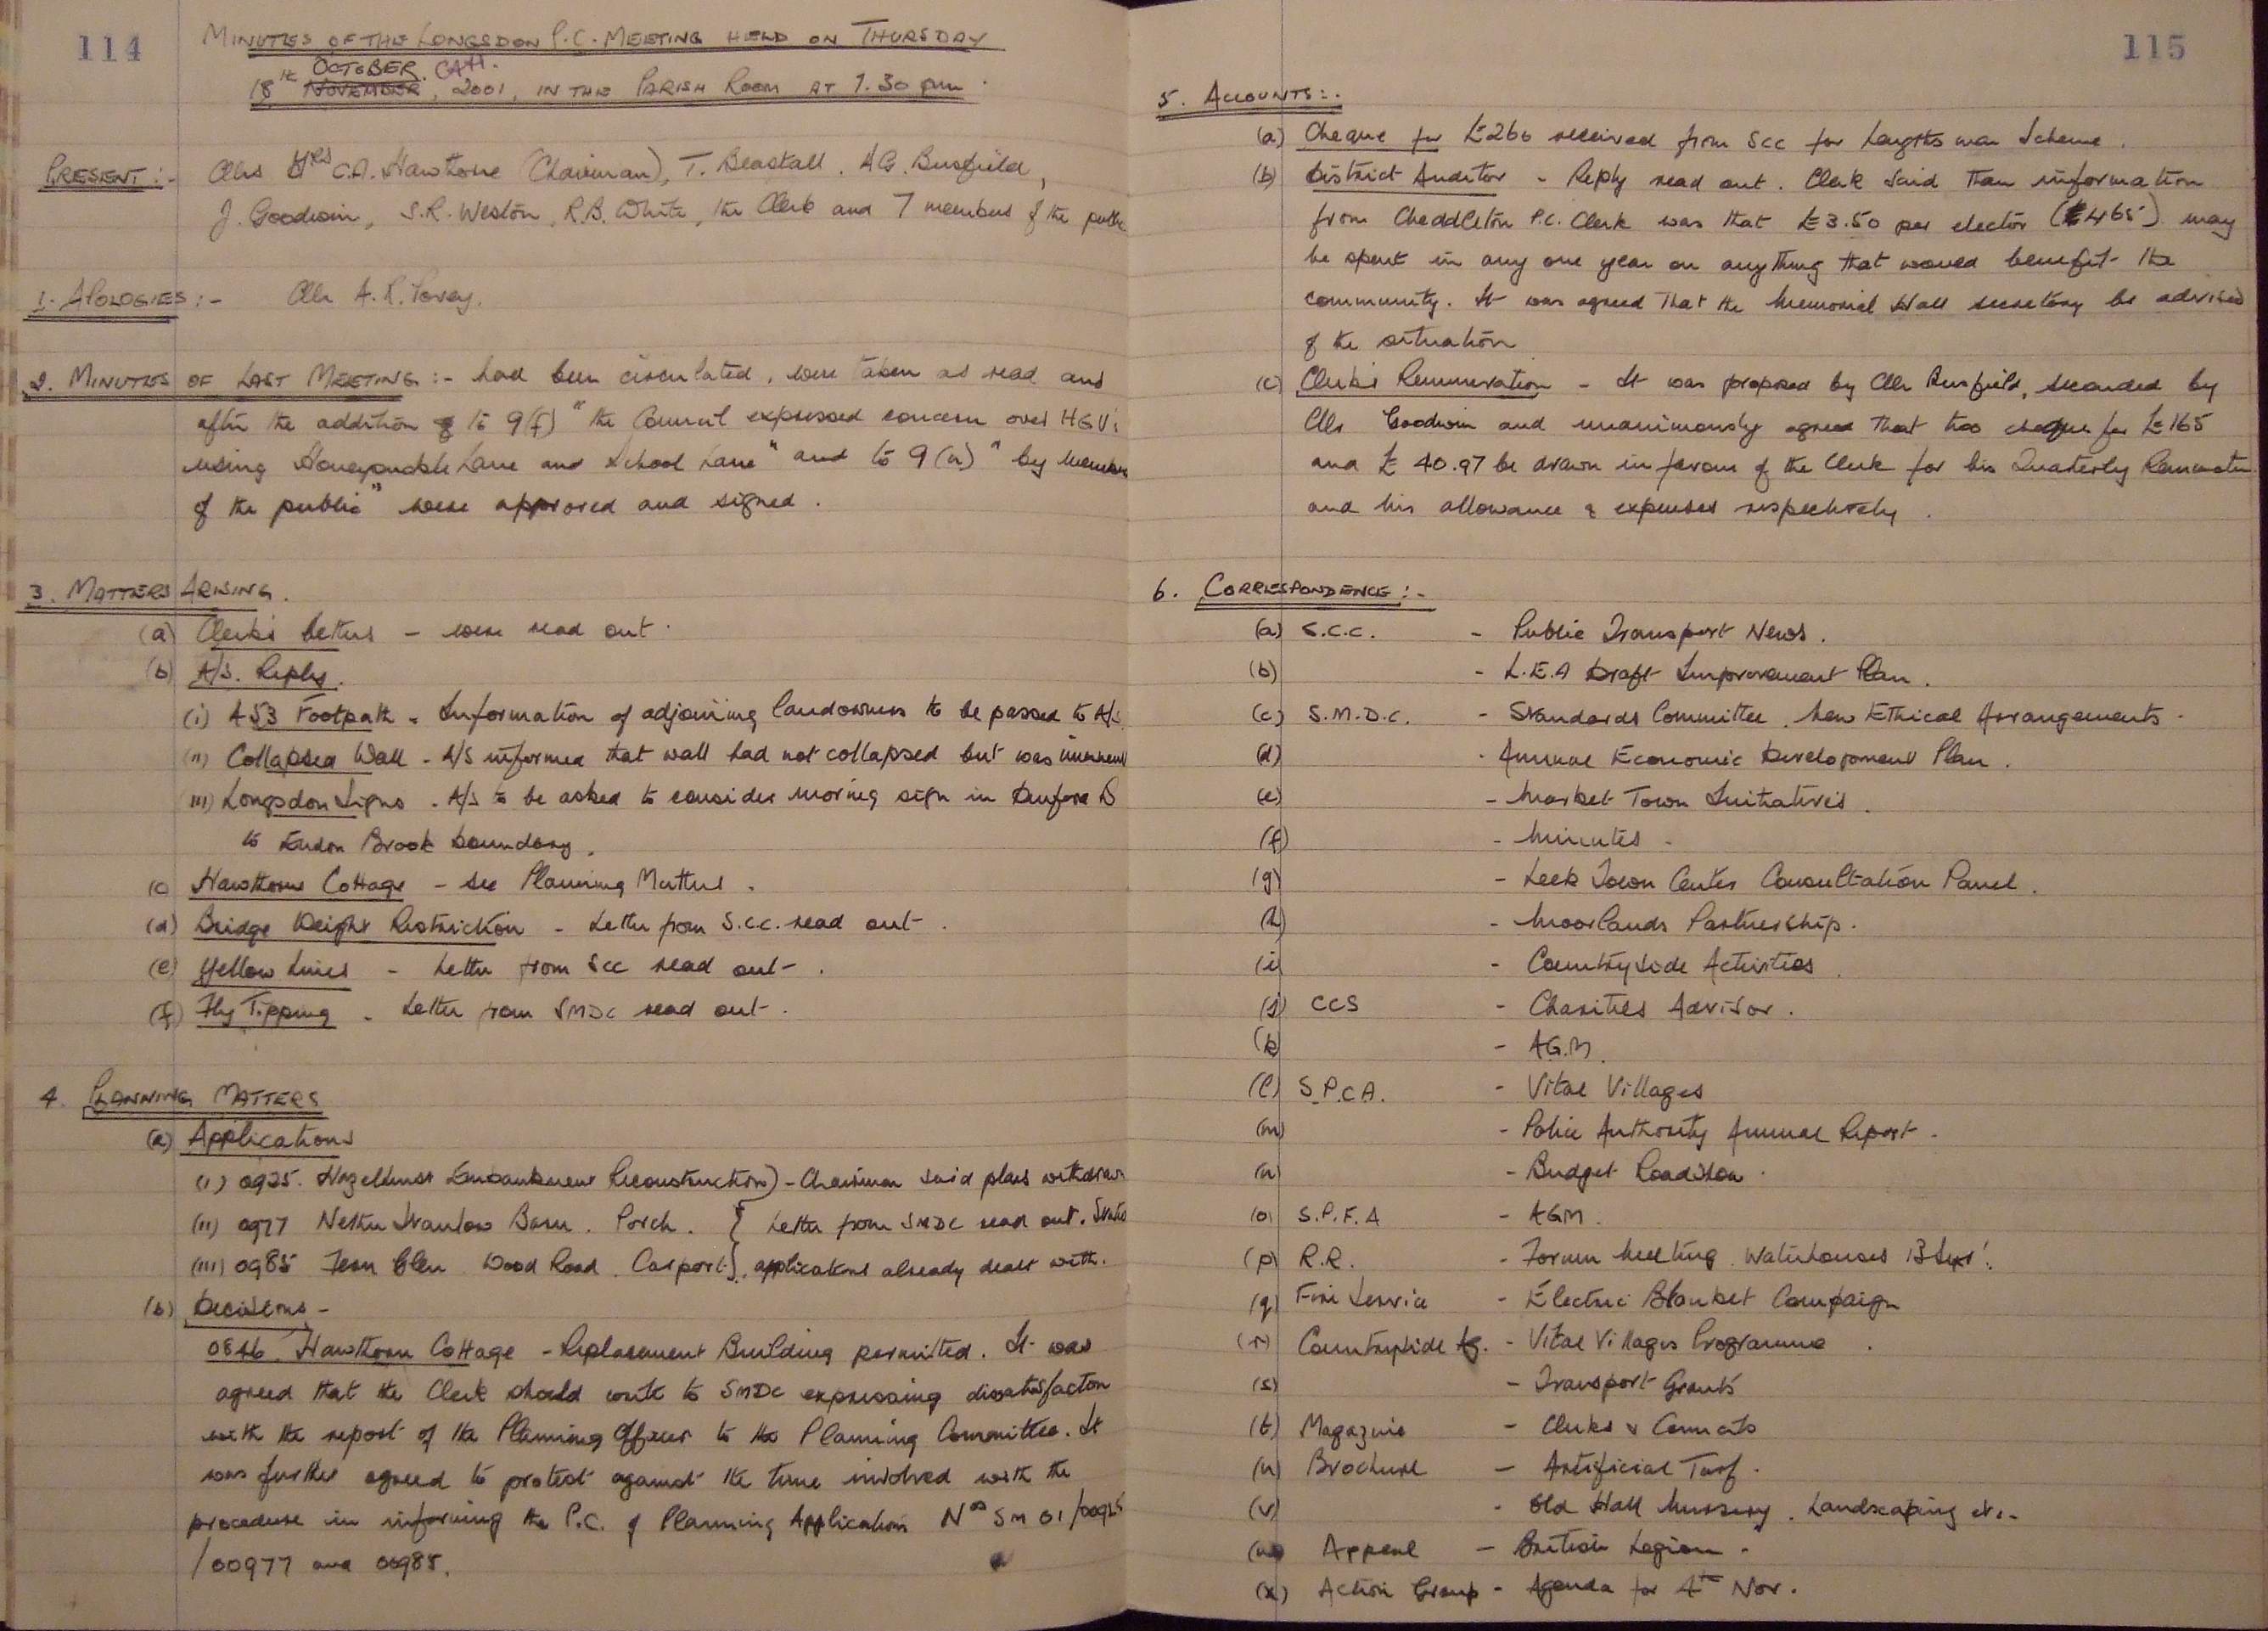 114
MINUTES OF THE LONGSDON P.C. MEETING HELD ON THURSDAY
OCTOBER. CAH.
18th NOVEMBER, 2001, IN THE PARISH ROOM AT 7.30 pm.
PRESENT :- Cllrs Mrs C.A. Hawthorne (Chairman), T. Beastall, A.G. Busfield,
J. Goodwin, S.R. Weston, R.B. White, the Clerk and 7 members of the public
1. APOLOGIES :- Cllr A.R. Povey.
2. MINUTES OF LAST MEETING :- had been circulated, were taken as read and
after the addition to 9(f) "the Council expressed concern over HGV's
using Honeysuckle Lane and School Lane" and to 9(a) "by members
of the public" were approved and signed.
3. MATTERS ARISING.
(a) Clerk's Letters - were read out.
(b) A/S. Reply.
(i) A53 Footpath - Information of adjoining landowners to be passed to A/S
(ii) Collapsed Wall - A/S informed that wall had not collapsed but was
(iii) Longsdon Signs - A/S to be asked to consider moving sign in
to Endon Brook boundary.
(c) Hawthorne Cottage - see Planning Matters.
(d) Bridge Weight Restriction - Letter from S.C.C. read out.
(e) Yellow Lines - Letter from SCC read out.
(f) Fly Tipping - Letter from SMDC read out.
4. PLANNING MATTERS
(a) Applications
(i) 0925. Hazelhurst Embankment Reconstruction) - Chairman said plans withdrawn
(ii) 0977 Nether Stanlow Barn. Porch. } Letter from SMDC read out. Stated
(iii) 0985 Glen Wood Road. Carport }. applications already dealt with.
(b) Decisions -
0846. Hawthorn Cottage - Replacement Building permitted. It was
agreed that the Clerk should write to SMDC expressing dissatisfaction
with the report of the Planning Officer to the Planning Committee. It
was further agreed to protest against the time involved with the
procedure in informing the P.C. of Planning Applications Nos SM 01/00925
/00977 and 00985.
115
5. ACCOUNTS :-
(a) Cheque for £260 received from SCC for Lengthsman Scheme.
(b) District Auditor - Reply read out. Clerk said than information
from Cheddleton P.C. Clerk was that £3.50 per elector (£465) may
be spent in any one year on anything that would benefit the
community. It was agreed that the Memorial Hall secretary be advised
of the situation
(c) Clerk's Remuneration - It was proposed by Cllr Busfield, seconded by
Cllr Goodwin and unanimously agreed that two cheques for £165
and £40.97 be drawn in favour of the Clerk for his Quarterly Remuneration
and his allowance & expenses respectively.
6. CORRESPONDENCE :-
(a) S.C.C. - Public Transport News.
(b) - L.E.A Draft Improvement Plan.
(c) S.M.D.C. - Standards Committee. New Ethical Arrangements.
(d) - Annual Economic Development Plan.
(e) - Market Town Initiatives.
(f) - Minutes.
(g) - Leek Town Center Consultation Panel.
(h) - Moorlands Partnership.
(i) - Countryside Activities.
(j) CCS - Charities Advisor.
(k) - AG.M.
(l) S.P.C.A. - Vital Villages
(m) - Police Authority Annual Report.
(n) - Budget Roadshow.
(o) S.P.F.A - AGM.
(p) R.R. - Forum Meeting. Waterhouses 13 Sept.
(q) Fire Service - Electric Blanket Campaign
(r) Countryside Ag. - Vital Villages Programme.
(s) - Transport Grants
(t) Magazine - Clerks & Councils
(u) Brochure - Artificial Turf.
(v) - Old Hall Nursery. Landscaping etc.
(w) Appeal - British Legion.
(x) Action Group - Agenda for 4th Nov.